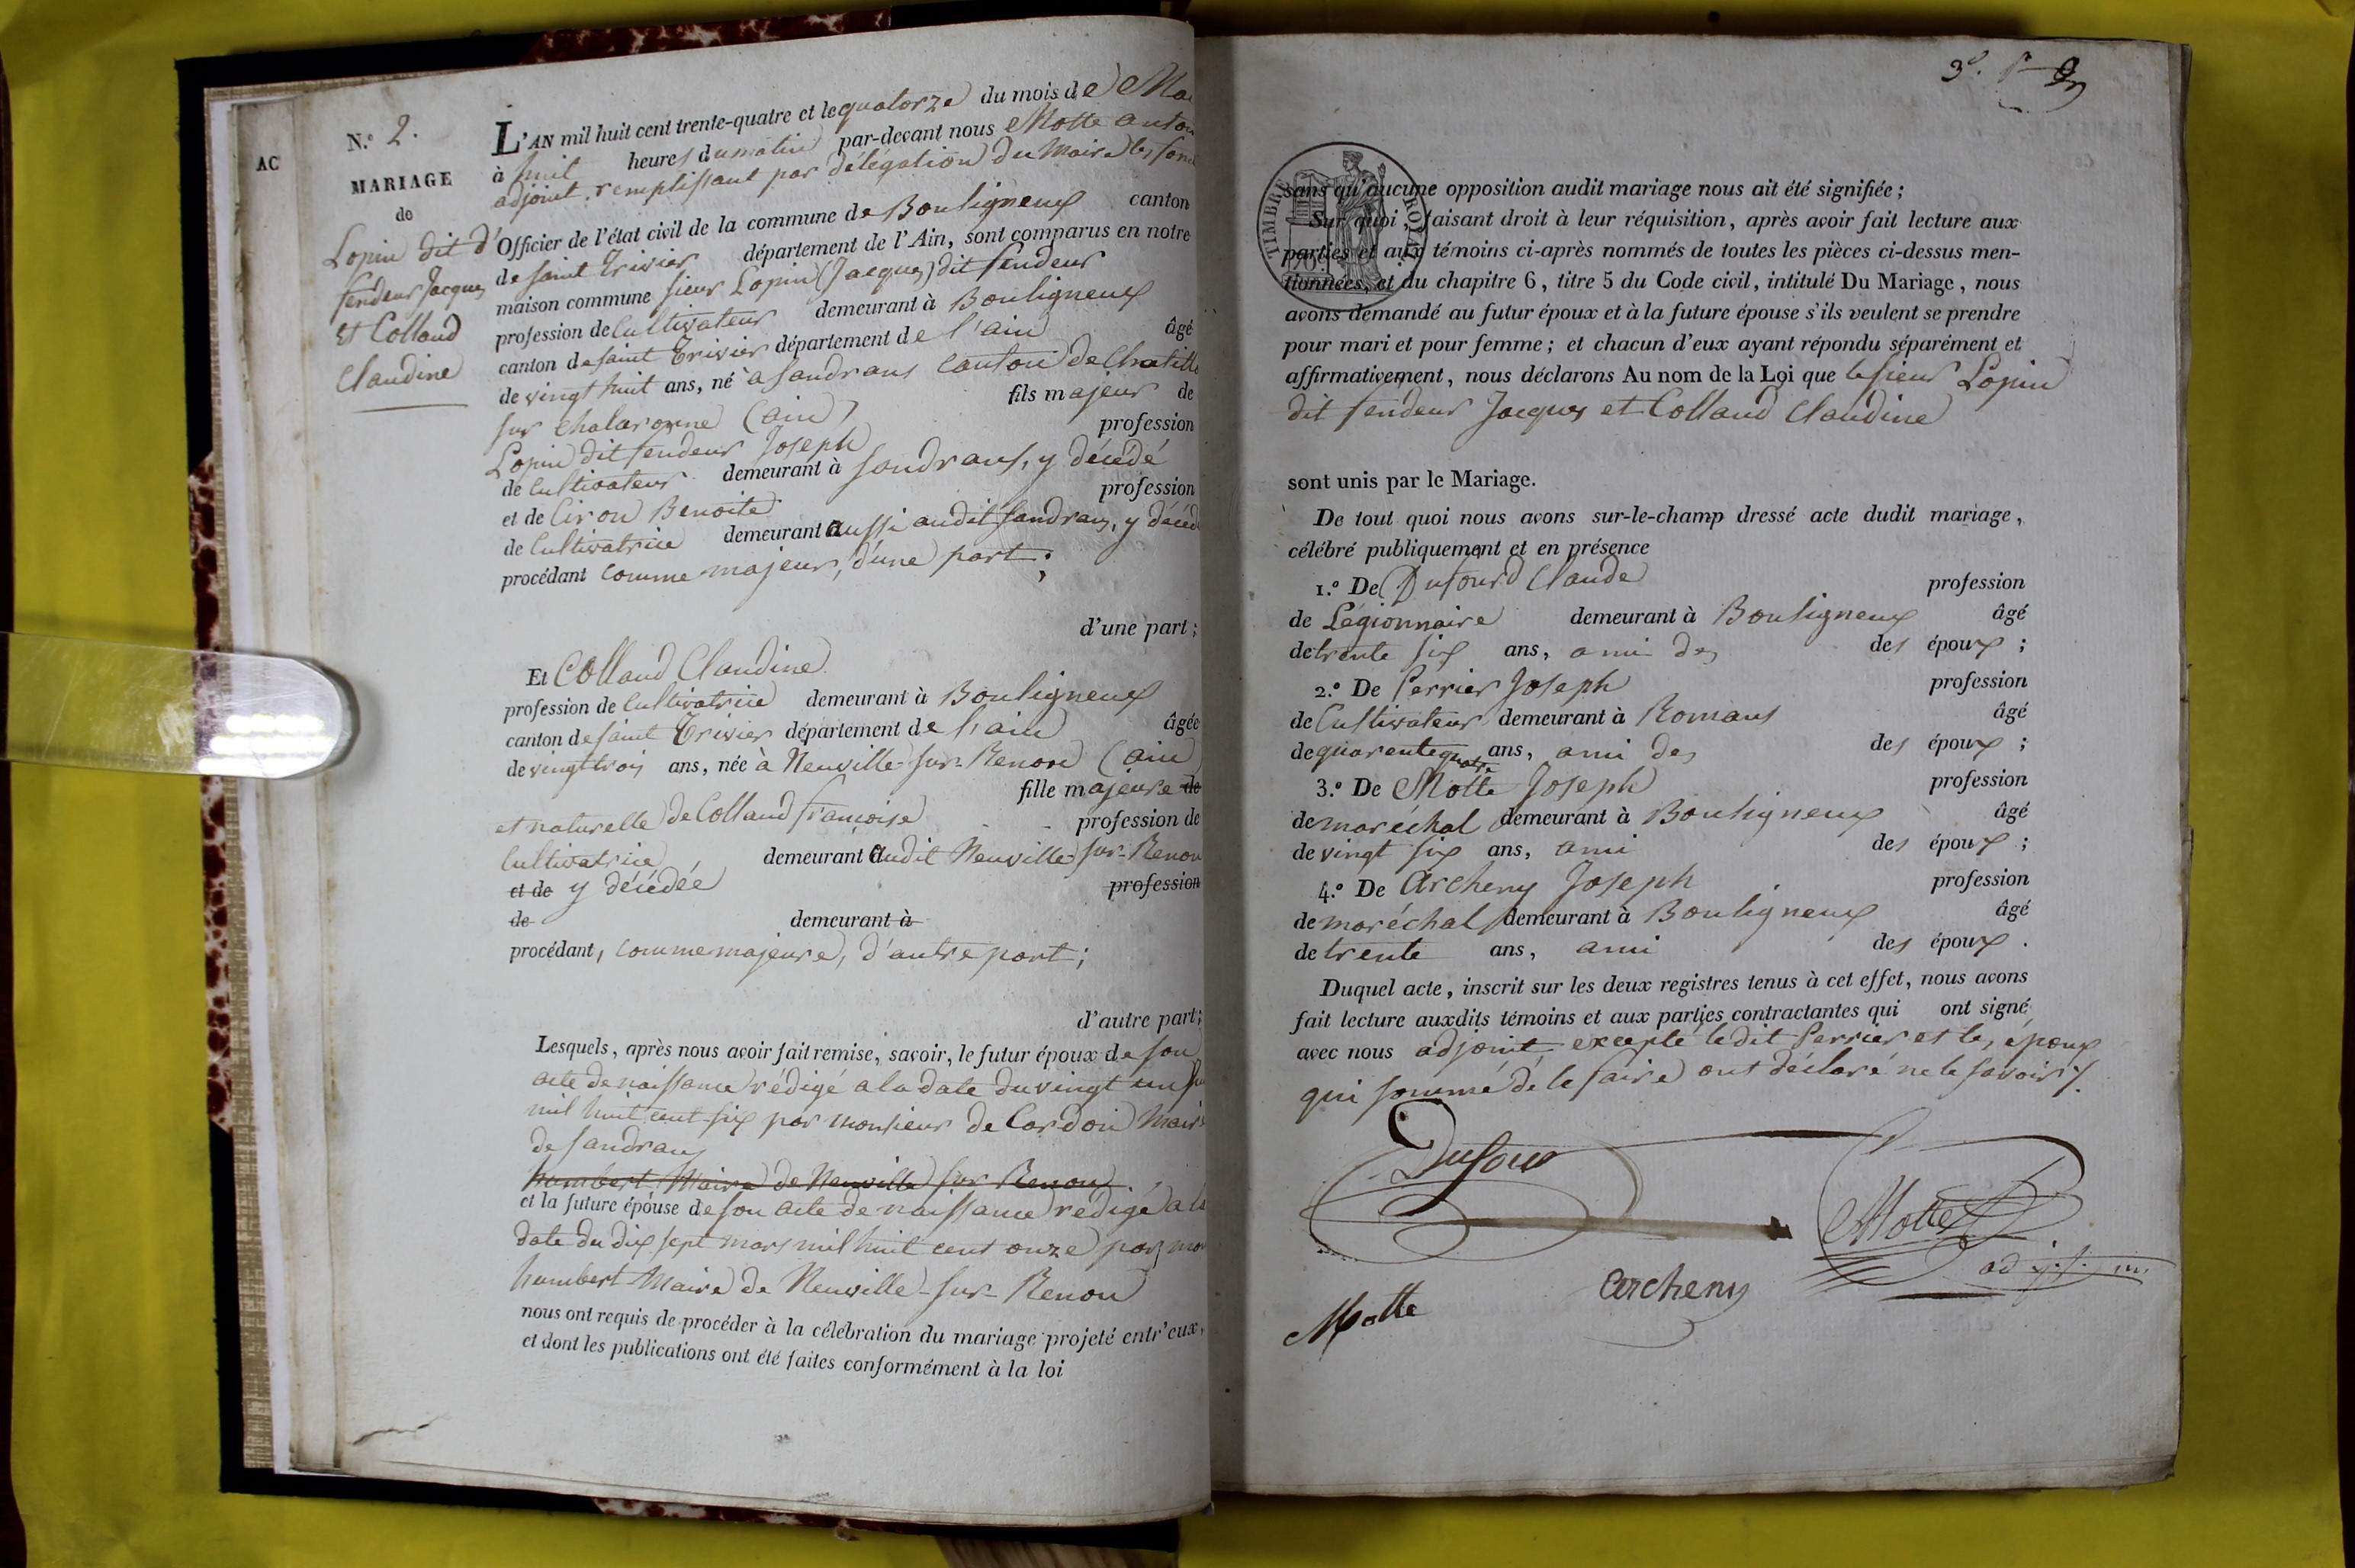 AC
N.º 2.
MARIAGE
de
Lopin dit d'
fendeur Jacques
et Colland
Claudine
L'AN mil huit cent trente-quatre et le quatorze du mois de
à huit heures du matin par-devant nous Motte
adjoint, remplissant par délégation du Maire les
Officier de l'état civil de la commune de Bouligneux canton
de saint Trivier département de l'Ain, sont comparus en notre
maison commune sieur Lopin (Jacques) dit fendeur
profession de Cultivateur demeurant à Bouligneux
canton de saint Trivier département de l'ain âgé
de vingt huit ans, né à Sandrans canton de
sur Chalaronne (ain) fils majeur de
Lopin dit fendeur Joseph profession
de Cultivateur demeurant à Sandrans, y décédé
et de Ciron Benoite profession
de Cultivatrice demeurant aussi audit Sandrans, y
procédant comme majeur, d'une part;
d'une part;
Et Colland Claudine
profession de Cultivatrice demeurant à Bouligneux
canton de saint Trivier département de l'ain âgée
de vingt trois ans, née à Neuville-sur-Renon (ain)
fille majeure de
et naturelle de Colland françoise profession de
Cultivatrice, demeurant audit Neuville-sur-Renon
et de y décédée profession
de demeurant à
procédant, comme majeure, d'autre part;
d'autre part;
Lesquels, après nous avoir fait remise, savoir, le futur époux de son
acte de naissance rédigé a la date du vingt un
mil huit cent six par monsieur de Cardon Maire
de Sandrans
humbert Maire de Neuville sur Renon
et la future épouse de son acte de naissance rédigé a la
date du dix sept mars mil huit cent onze par
humbert Maire de Neuville-sur-Renon
nous ont requis de procéder à la célébration du mariage projeté entr'eux,
et dont les publications ont été faites conformément à la loi
TIMBRE ROYAL
sans qu'aucune opposition audit mariage nous ait été signifiée;
Sur quoi, faisant droit à leur réquisition, après avoir fait lecture aux
parties et aux témoins ci-après nommés de toutes les pièces ci-dessus men-
tionnées, et du chapitre 6, titre 5 du Code civil, intitulé Du Mariage, nous
avons demandé au futur époux et à la future épouse s'ils veulent se prendre
pour mari et pour femme; et chacun d'eux ayant répondu séparément et
affirmativement, nous déclarons Au nom de la Loi que le sieur Lopin
dit fendeur Jacques et Colland Claudine
sont unis par le Mariage.
De tout quoi nous avons sur-le-champ dressé acte dudit mariage,
célébré publiquement et en présence
1.º De Dufourd Claude profession
de Légionnaire demeurant à Bouligneux âgé
de trente six ans, ami des des époux;
2.º De Perrier Joseph profession
de Cultivateur demeurant à Romans âgé
de quarente quatre ans, ami des des époux;
3.º De Motte Joseph profession
de maréchal demeurant à Bouligneux âgé
de vingt six ans, ami des époux;
4.º De Archeny Joseph profession
de maréchal demeurant à Bouligneux âgé
de trente ans, ami des époux.
Duquel acte, inscrit sur les deux registres tenus à cet effet, nous avons
fait lecture auxdits témoins et aux parties contractantes qui ont signé
avec nous adjoint, excepté ledit Perrier et les époux
qui sommé de le faire ont déclaré ne le savoir ./.
Dufour
Motte
adj.
Archeny
Motte